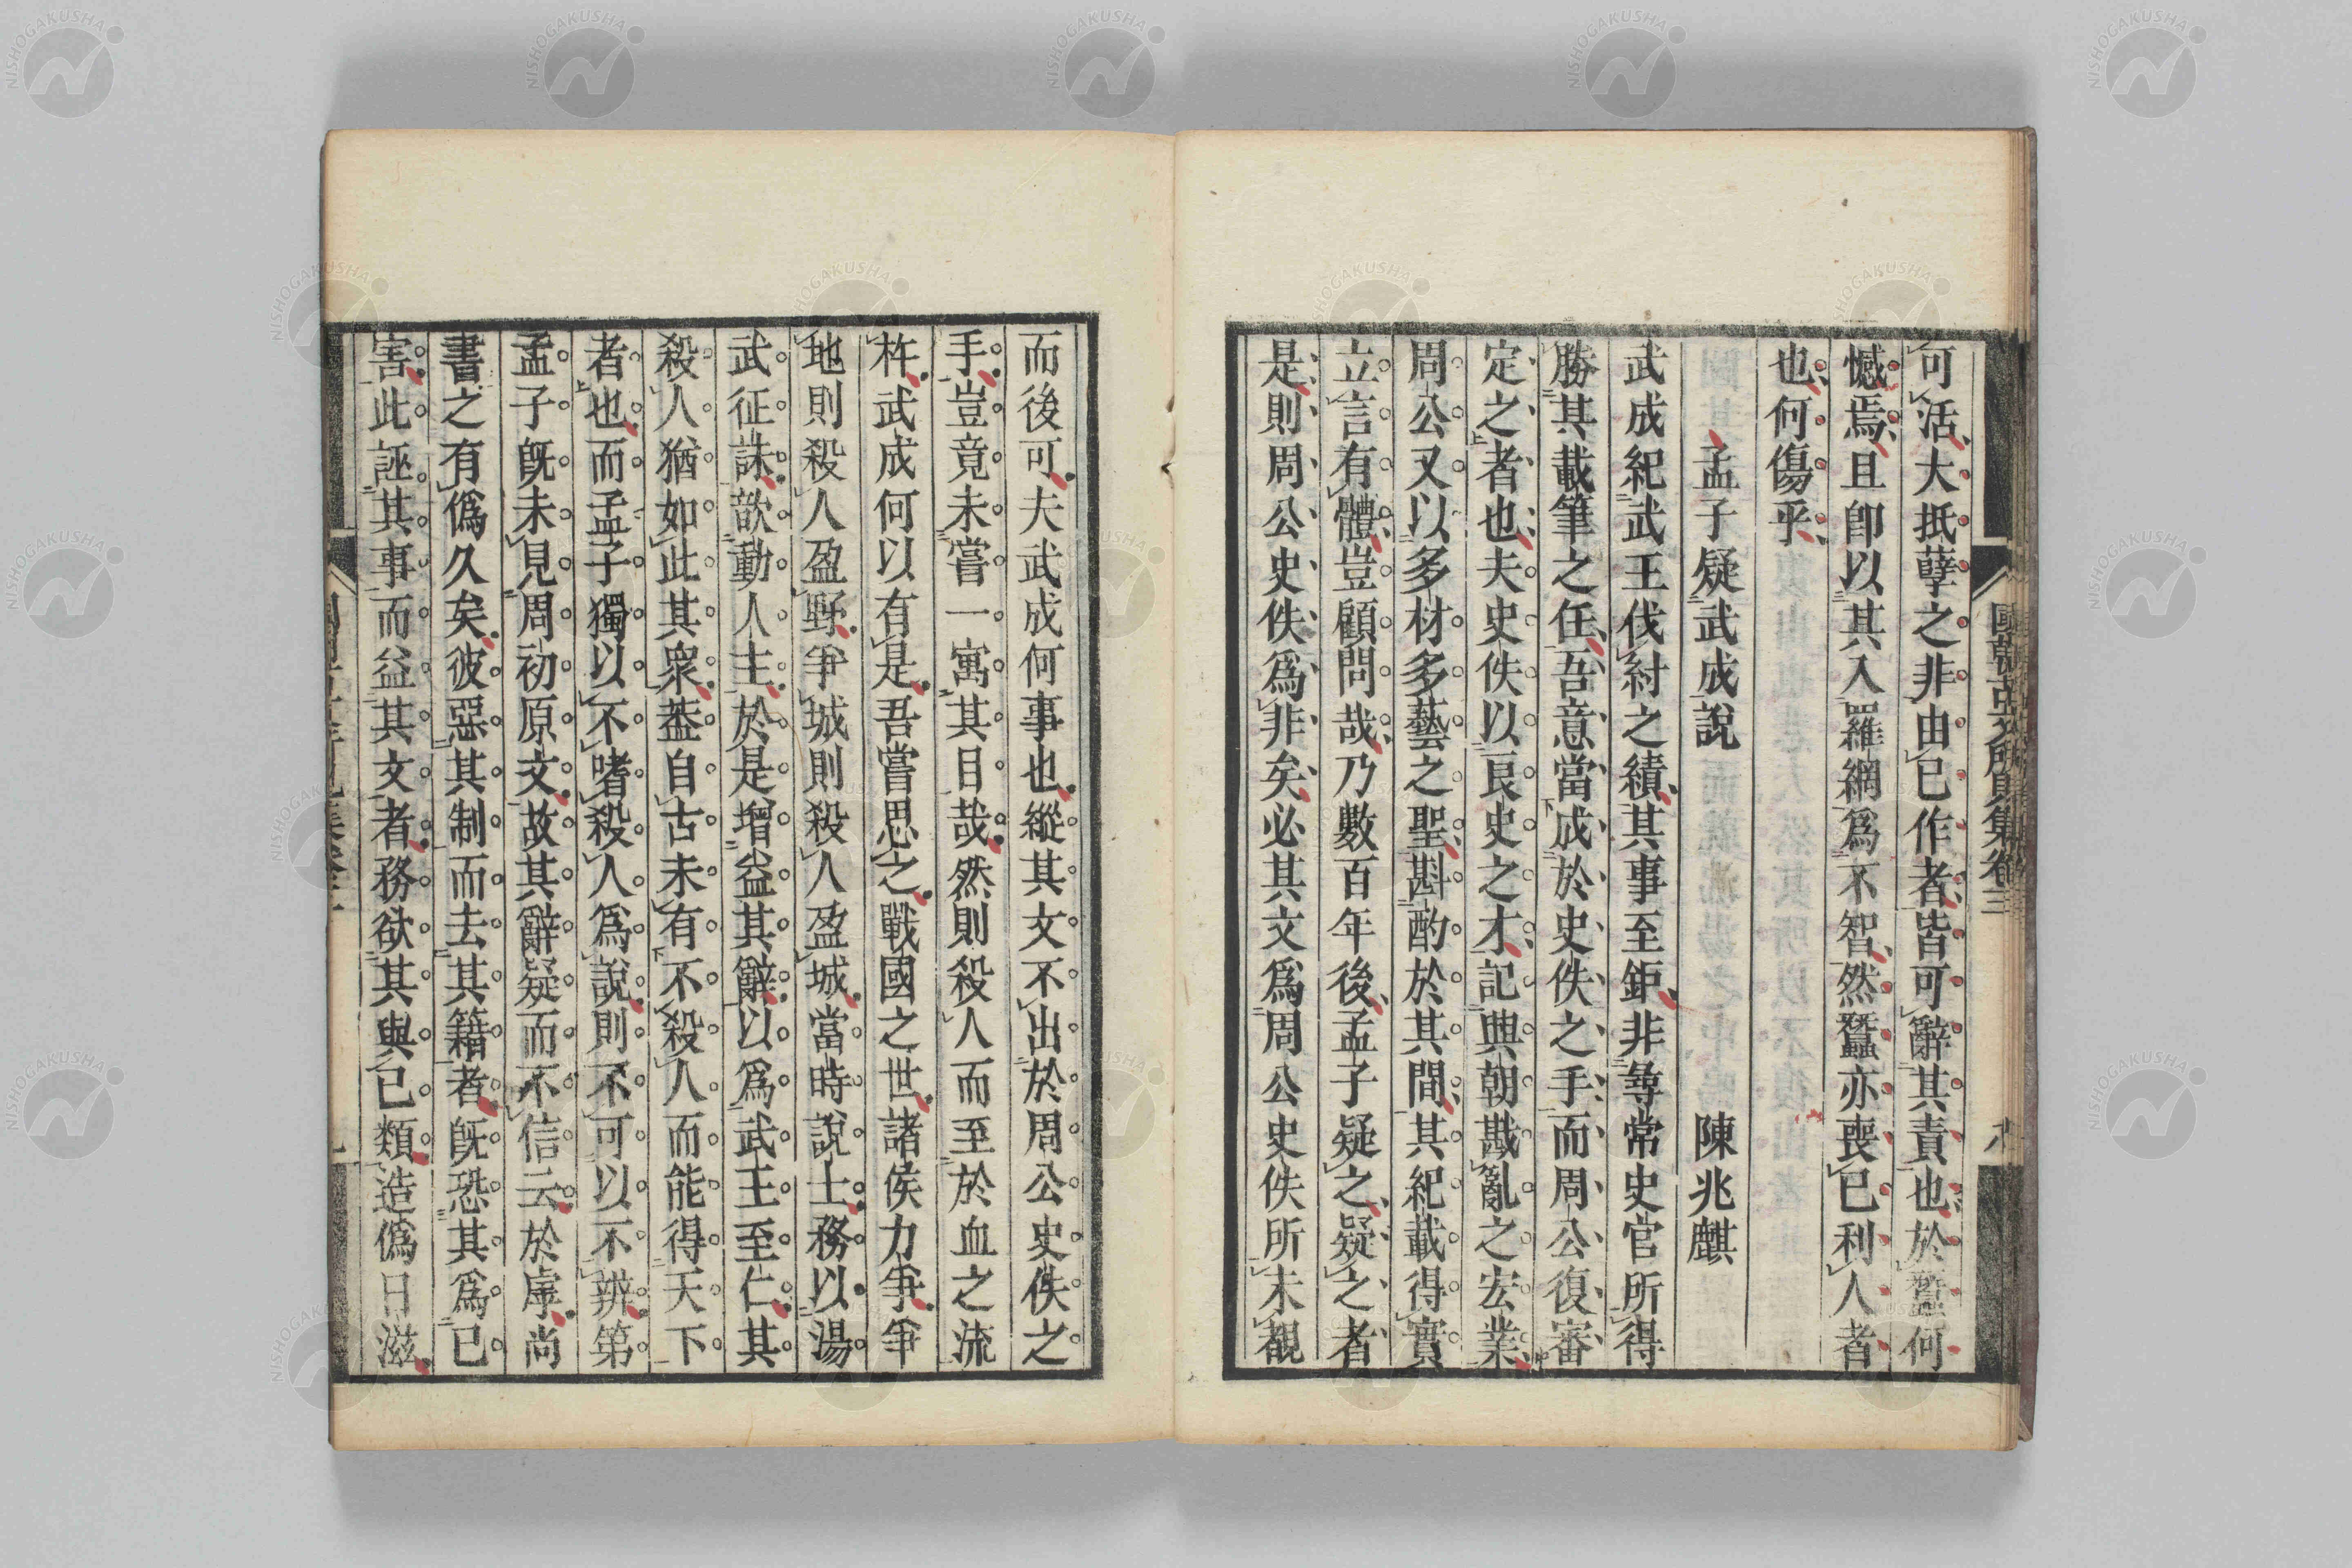 可活大抵孽之非由已作者皆可辭其責也於蠶何
憾焉且卽以其入羅網爲不智然蠶亦喪已利人者
也何傷乎
孟子疑武成說　陳兆麒
武成紀武王伐紂之績其事至鉅非尋常史官所得
勝其載筆之任吾意當成於史佚之手而周公復審
定之者也夫史佚以良史之才記興朝戡亂之宏業
周公又以多材多藝之聖斟酌於其間其紀載得實
立言有體豈顧問哉乃數百年後孟子疑之疑之者
是則周公史佚爲非矣必其文爲周公史佚所未觀
而後可夫武成何事也縱其文不出於周公史佚之
手豈竟未嘗一寓其目哉然則殺人而至於血之流
杵武成何以有是吾嘗思之戰國之世諸侯力爭爭
地則殺人盈野爭城則殺人盈城當時說士務以湯
武征誅歆動人主於是增益其辭以爲武王至仁其
殺人猶如此其衆葢自古未有不殺人而能得天下
者也而孟子獨以不嗜殺人爲說則不可以不辨第
孟子旣未見周初原文故其辭疑而不信云於虖尚
書之有僞久矣彼惡其制而去其籍者旣恐其爲已
害此誣其事而益其文者務欲其與已類造僞日滋
國朝古文所見集卷三